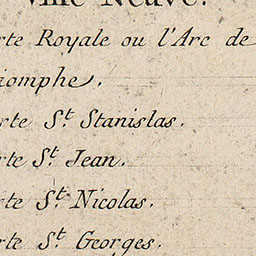 Ville Neuve.
rte Royale ou l'Arc de
iomphe.
rte St. Stanislas.
rte St. Jean.
rte St. Nicolas.
rte St. Georges.